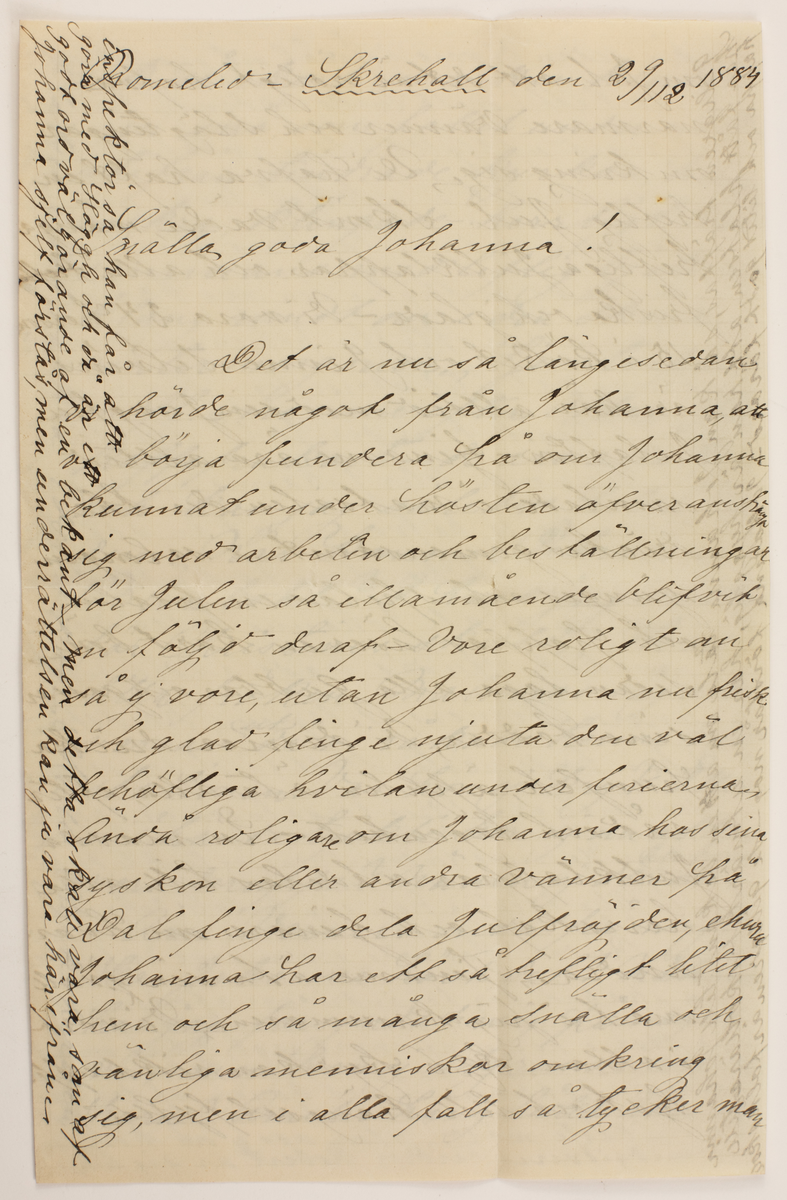 Romeled - Skrehall den 29/12 1884
Snälla, goda Johanna!
Det är nu så längesedan
vi hörde något från Johanna, att
vi börja fundera på om Johanna
kunnat under hösten öfveranstränga
sig med arbeten och beställningar
för Julen så illamående blifvit
en följd deraf - Vore roligt om
så ej vore, utan Johanna nu frisk
och glad finge njuta den väl
behöfliga hvilan under ferierna,
Ändå roligare om Johanna hos sina
syskon eller andra vänner på
Dal finge dela Julfröjden, ehuru
Johanna har ett så trefligt litet
hem och så många snälla och
vänliga menniskor omkring
sig, men i alla fall så tycker man
inspektör så han får att
göra med Höggh och då är ett
godt ord välgörande af en bekant - men detta skall vara, som af
Johanna sjelf förstås, men underrättelsen kan ju vara härifrån -